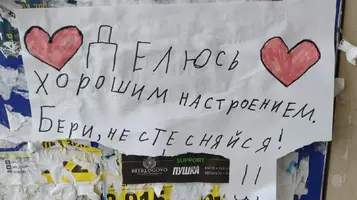 Делюсь
хорошим настроением.
Бери, не стесняйся!
SUPPORT
BEERLOGOVO
ПУШКА